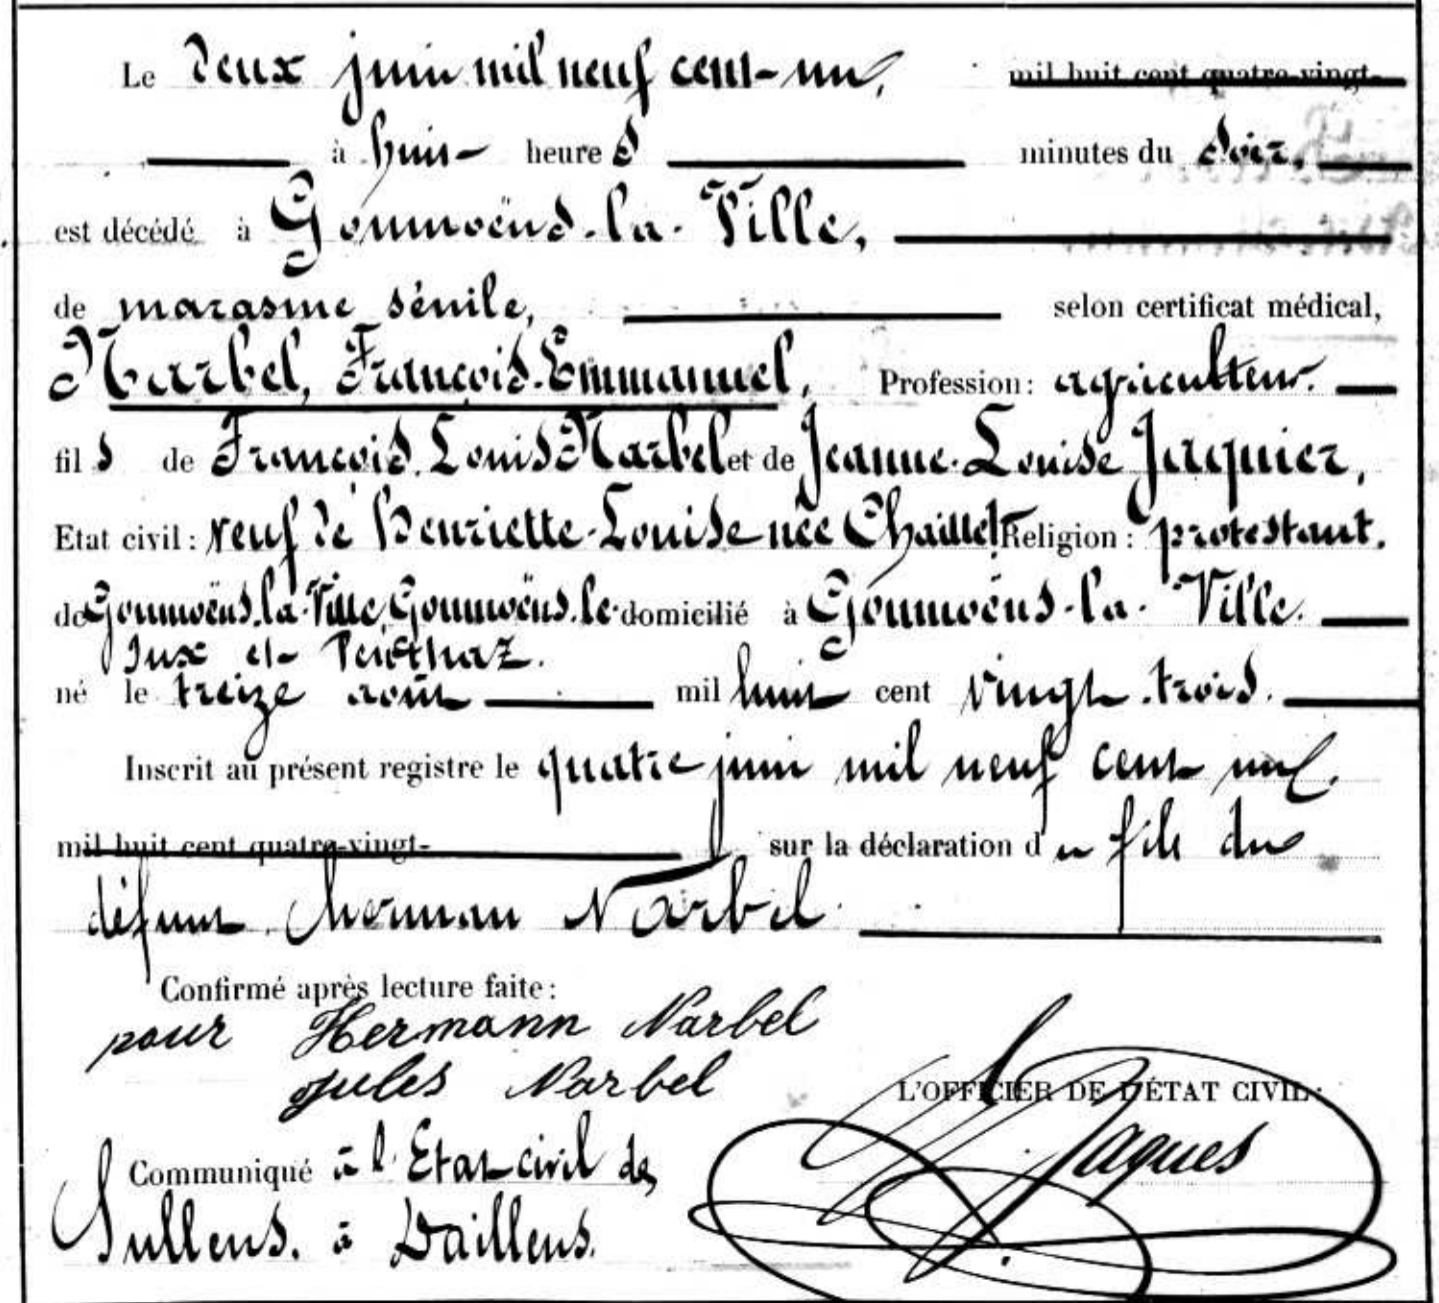 Le deux juin mil neuf cent-un, mil huit cent quatre-vingt-
à huit heures minutes du soir,
est décédé à Goumoëns-la-Ville,
de marasme sénile, selon certificat médical,
Narbel, François-Emmanuel, Profession: agriculteur.
fils de François-Louis Narbel et de Jeanne-Louise Jaquier,
Etat civil: veuf de Henriette-Louise née Chaillet Religion: protestant.
de Goumoëns-la-Ville, Goumoëns-le- domicilié à Goumoëns-la-Ville.
Jux et Penthaz.
né le treize août mil huit cent vingt-trois.
Inscrit au présent registre le quatre juin mil neuf cent un
mil huit cent quatre-vingt- sur la déclaration du fils du
défunt, Herman Narbel
Confirmé après lecture faite:
pour Hermann Narbel
Jules Narbel
L'OFFICIER DE L'ÉTAT CIVIL:
Jaques
Communiqué à l'Etat civil de
Sullens. à Daillens.